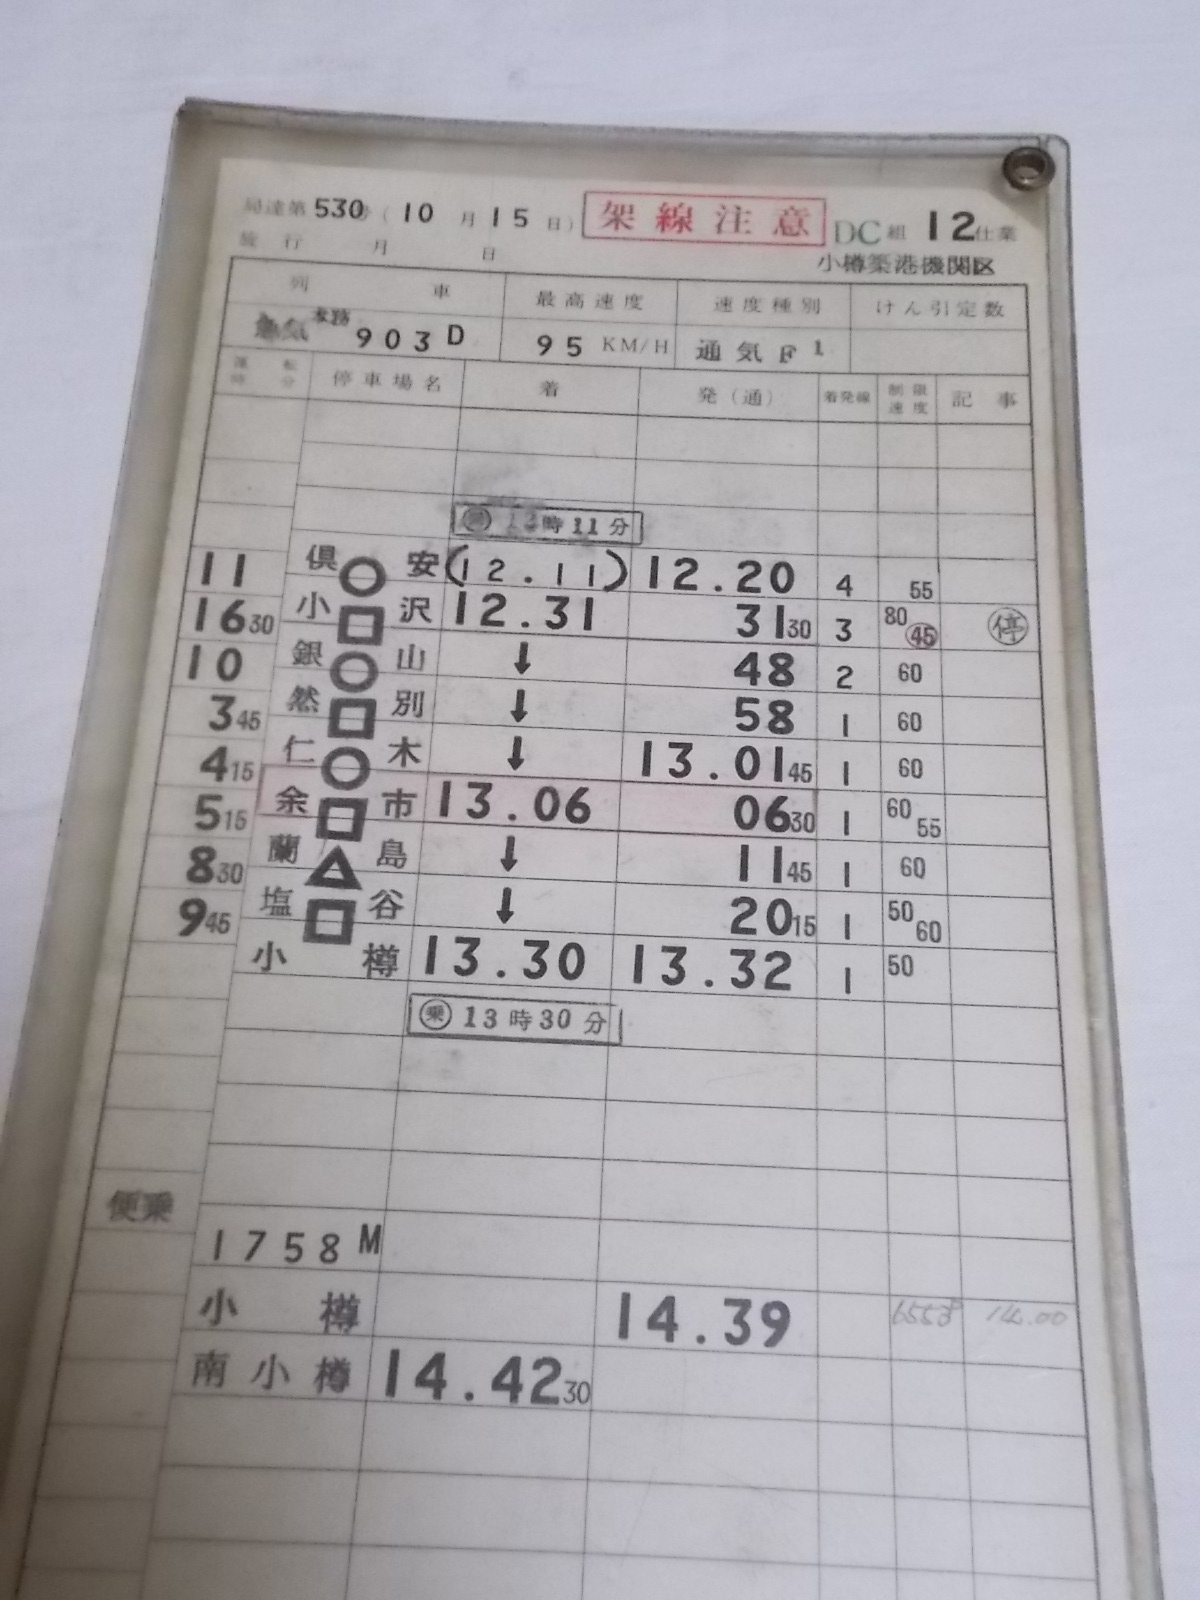 局達第530号(10月15日) 架線注意 DC組 12仕業
施行 月 日 小樽築港機関区
列車 最高速度 速度種別 けん引定数
急気 本務 903D 95 KM/H 通気F1
運転時分 停車場名 着 発(通) 着発線 制限速度 記事
乗 12時11分
11 倶安 (12.11) 12.20 4 55
1630 小沢 12.31 3130 3 80 45 停
10 銀山 ↓ 48 2 60
345 然別 ↓ 58 1 60
415 仁木 ↓ 13.0145 1 60
515 余市 13.06 0630 1 60 55
830 蘭島 ↓ 1145 1 60
945 塩谷 ↓ 2015 1 50 60
小樽 13.30 13.32 1 50
乗 13時30分
便乗
1758M
小樽 14.39 14.00
南小樽 14.4230